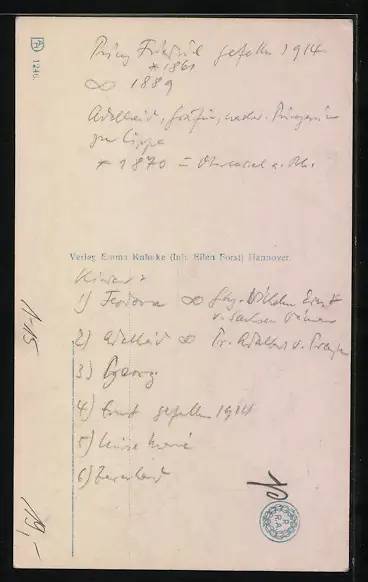 1246.
Prinz Friedrich gefallen 1914
* 1861
∞ 1889
Adelheid, Gräfin, Prinzessin
zur Lippe
* 1870 Oberkassel a. Rh.
Verlag Emma Kuhnke (Inh. Ellen Forst) Hannover.
Kinder:
1) Feodora ∞ Ghzg. Wilhelm Ernst
v. Sachsen Weimar
2) Adelheid ∞ Pr. Adalbert v. Preußen
3) Georg
4) Ernst gefallen 1914
5) Luise Marie
6) Bernhard
19,-